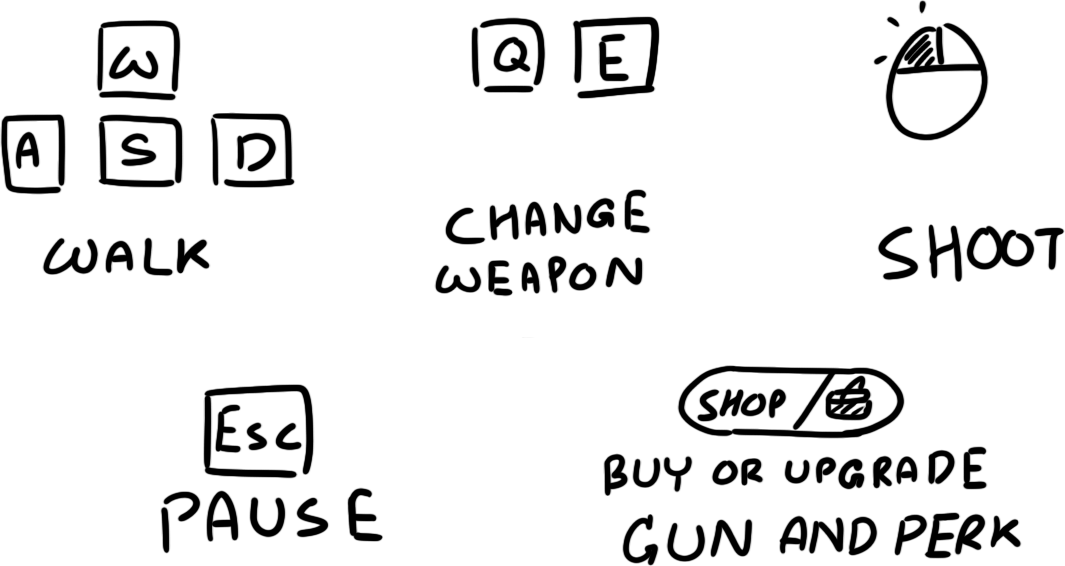 W
A S D
WALK
Q E
CHANGE
WEAPON
SHOOT
Esc
PAUSE
SHOP
BUY OR UPGRADE
GUN AND PERK